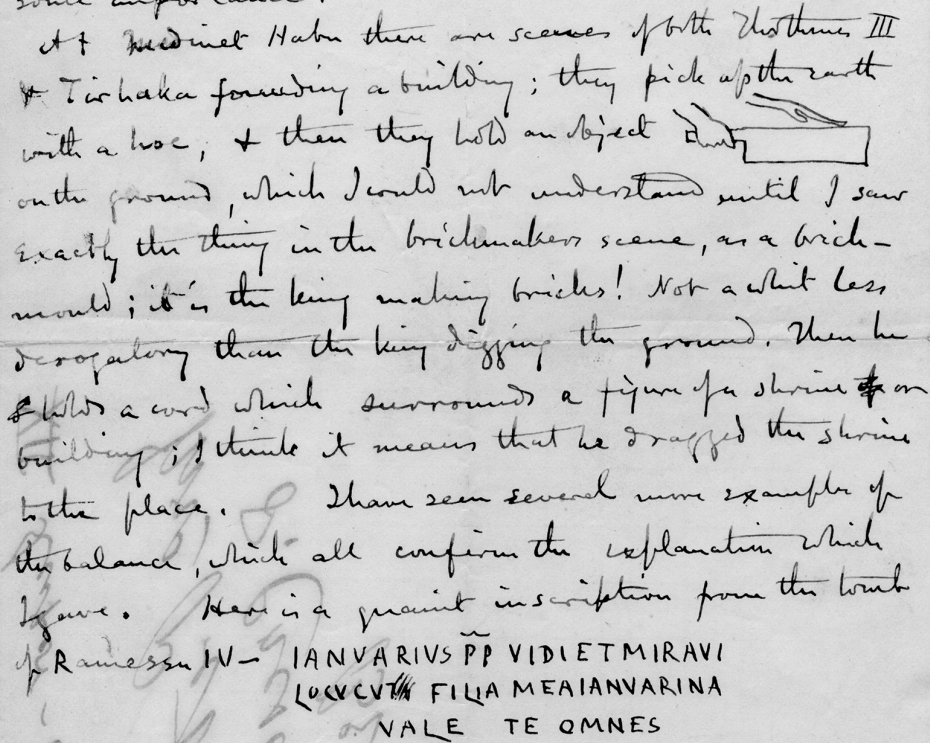 some importance.
At Medinet Habu there are scenes of both Thothmes III
& Tirhaka founding a building; they pick up the earth
with a hoe, & then they hold an object
on the ground, which I could not understand until I saw
exactly the thing in the brickmakers scene, as a brick-
mould; it is the king making bricks! Not a whit less
derogatory than the king digging the ground. Then he
holds a cord which surrounds a figure of a shrine or
building; I think it means that he dragged the shrine
to the place. I have seen several more examples of
the balance, which all confirm the explanation which
I gave. Here is a quaint inscription from the tomb
of Ramessu IV— IANVARIVS P̃P VIDIETMIRAVI
LOCVCVT FILIA MEAIANVARINA
VALE TE OMNES